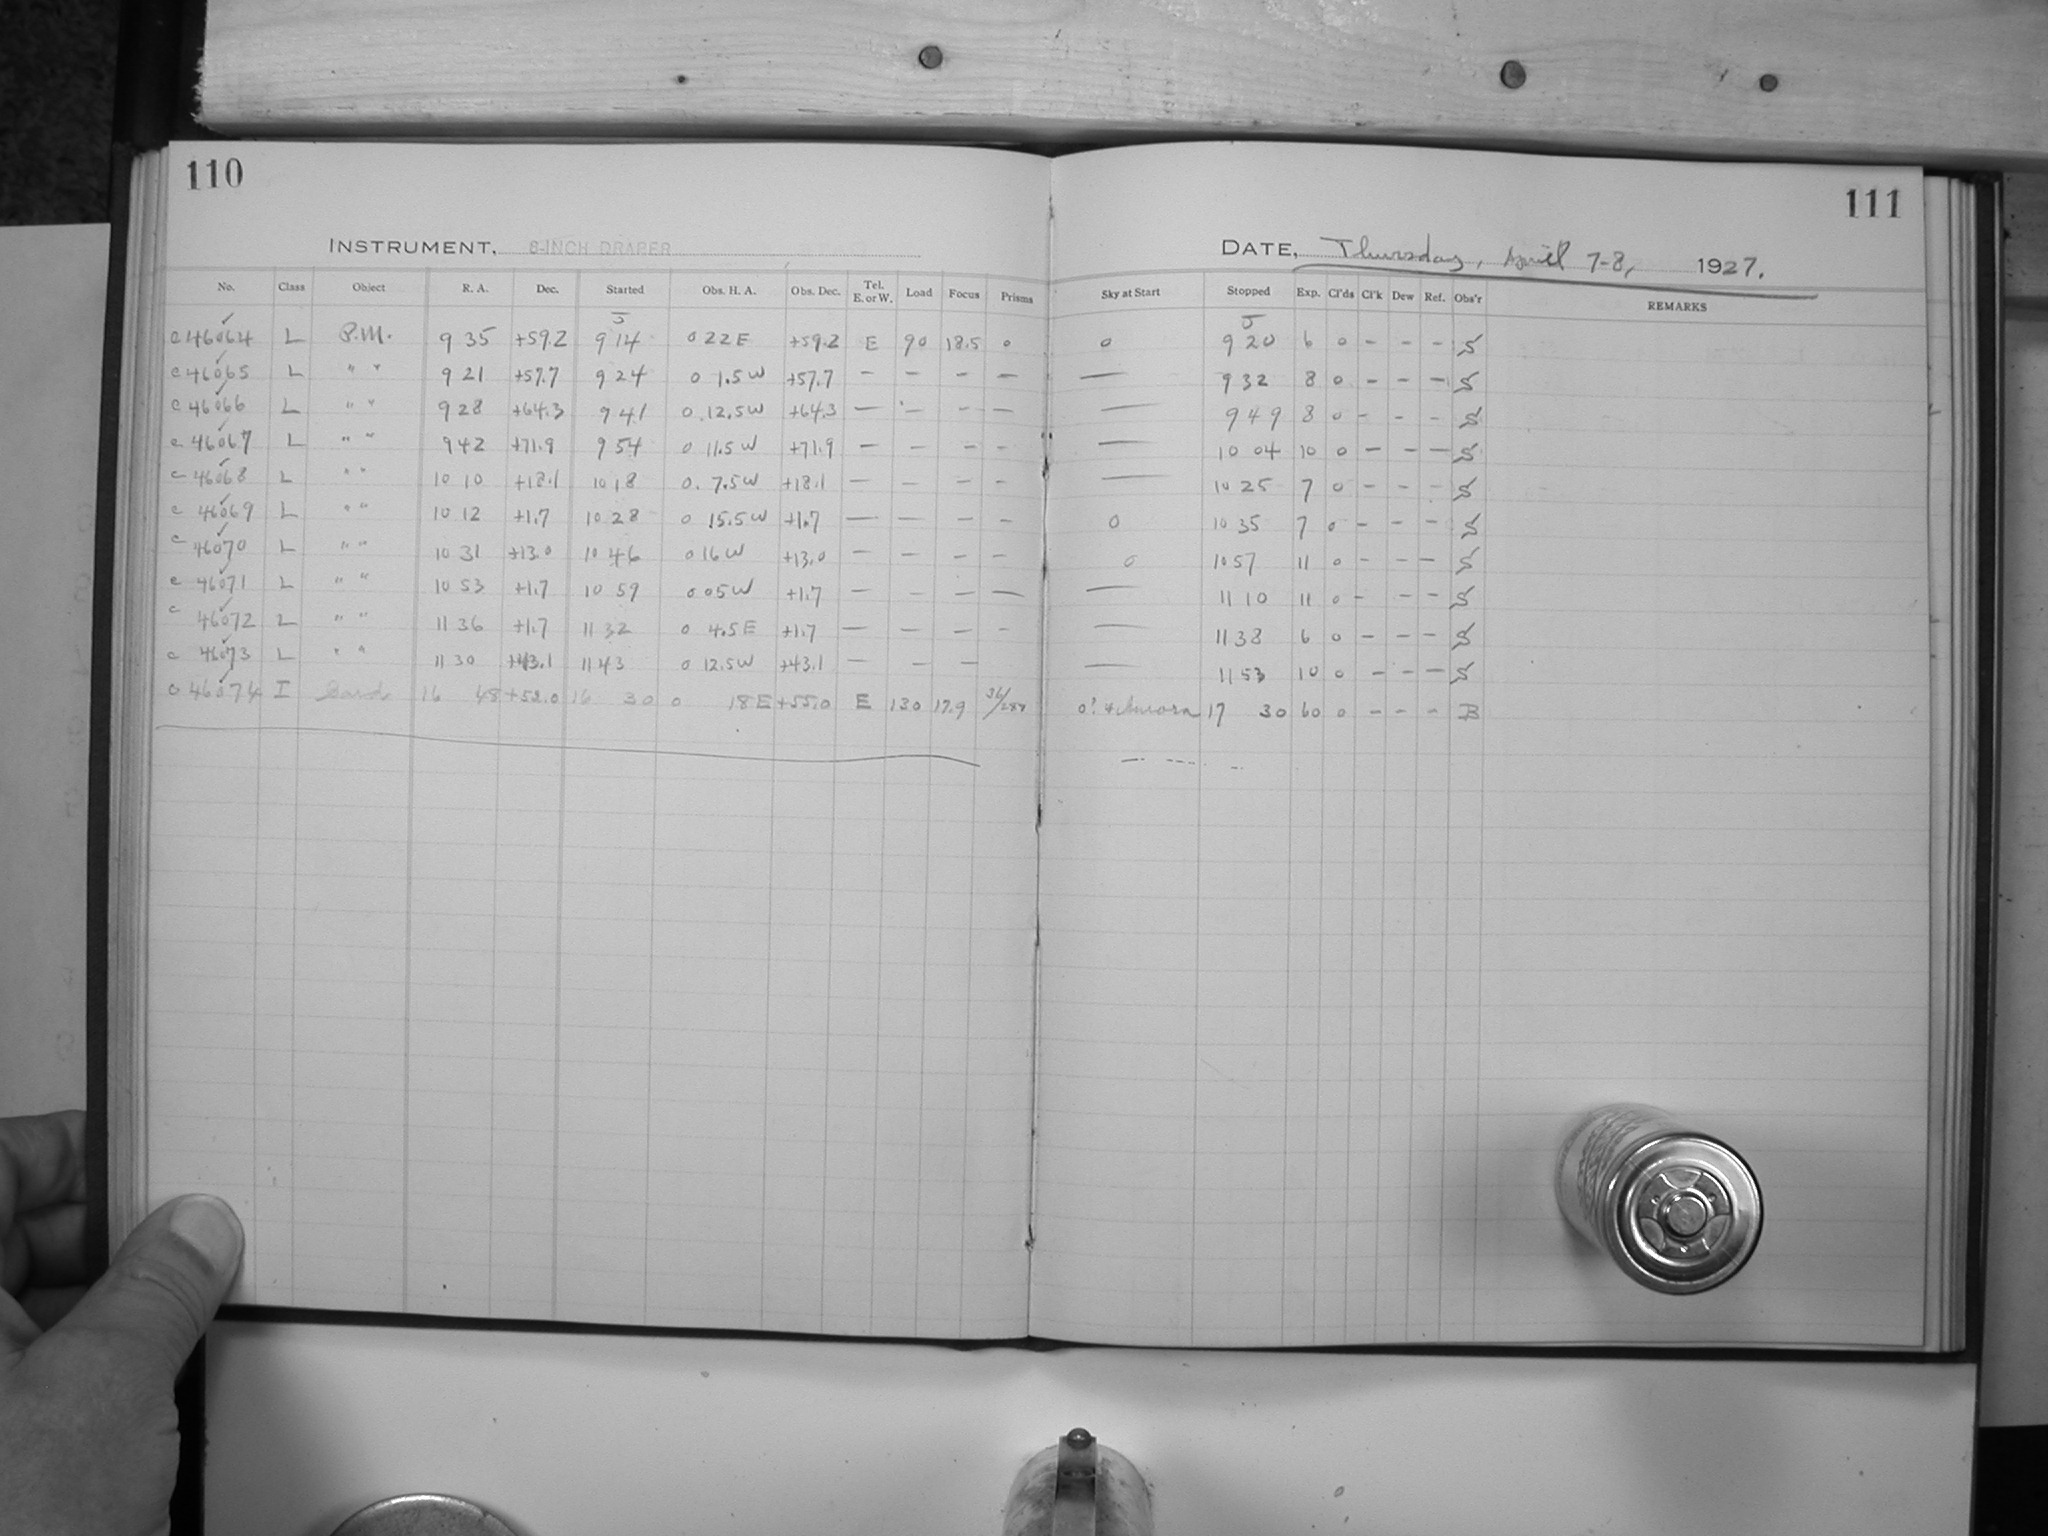 110
111
INSTRUMENT, 8-INCH DRAPER
DATE, Thursday, April 7-8, 1927.
No. Class Object R. A. Dec. Started Obs. H. A. Obs. Dec. Tel. E. or W. Load Focus Prisms Sky at Start Stopped Exp. Cl'ds Cl'k Dew Ref. Obs'r REMARKS
c 46064 L P.M. 9 35 +59.2 9 14 0 22 E +59.2 E 90 18.5 0 0 9 20 6 0 - - - S
c 46065 L " " 9 21 +57.7 9 24 0 1.5 W +57.7 — — — — — 9 32 8 0 - - - S
c 46066 L " " 9 28 +64.3 9 41 0 12.5 W +64.3 — — — — — 9 49 8 0 - - - S
c 46067 L " " 9 42 +71.9 9 54 0 11.5 W +71.9 — — — — — 10 04 10 0 - - - S
c 46068 L " " 10 10 +18.1 10 18 0. 7.5 W +18.1 — — — — — 10 25 7 0 - - - S
c 46069 L " " 10 12 +1.7 10 28 0 15.5 W +1.7 — — — — 0 10 35 7 0 - - - S
c 46070 L " " 10 31 +13.0 10 46 0 16 W +13.0 — — — — 0 10 57 11 0 - - - S
c 46071 L " " 10 53 +1.7 10 59 0 05 W +1.7 — — — — — 11 10 11 0 - - - S
c 46072 L " " 11 36 +1.7 11 32 0 4.5 E +1.7 — — — — — 11 38 6 0 - - - S
c 46073 L " " 11 30 +43.1 11 43 0 12.5 W +43.1 — — — — 11 53 10 0 - - - S
c 46074 I 16 48 +52.0 16 30 0 18 E +55.0 E 130 17.9 0! + Aurora 17 30 60 0 - - - B